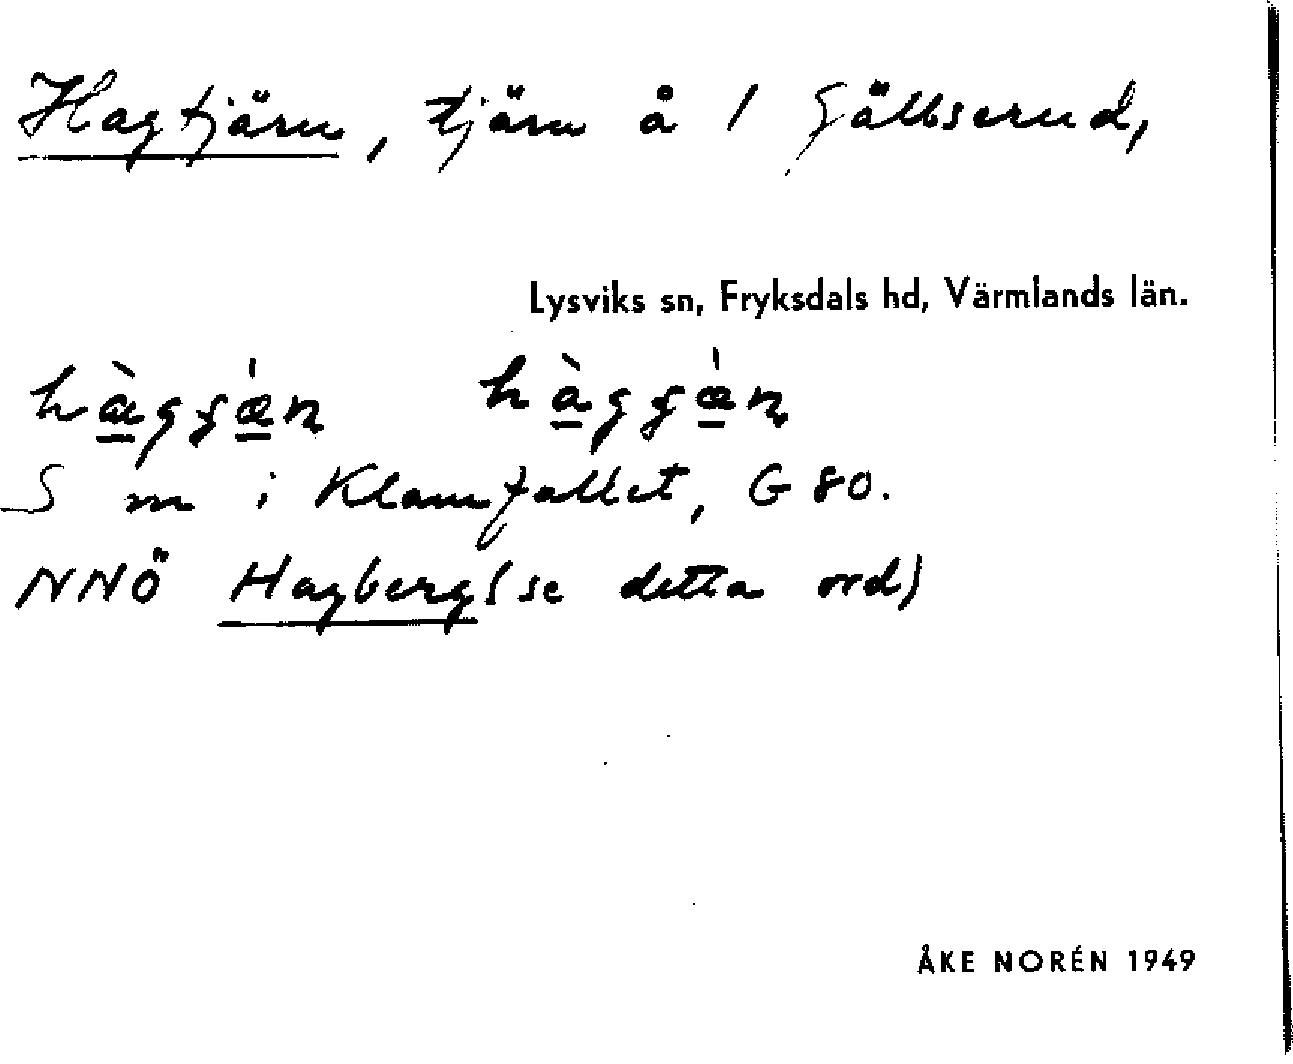 Hagtjärn, tjärn å 1 Gällserud,
Lysviks sn, Fryksdals hd, Värmlands län.
S m i Klamfallet, G 80.
NNÖ Hagberg (se detta ord)
ÅKE NORÉN 1949